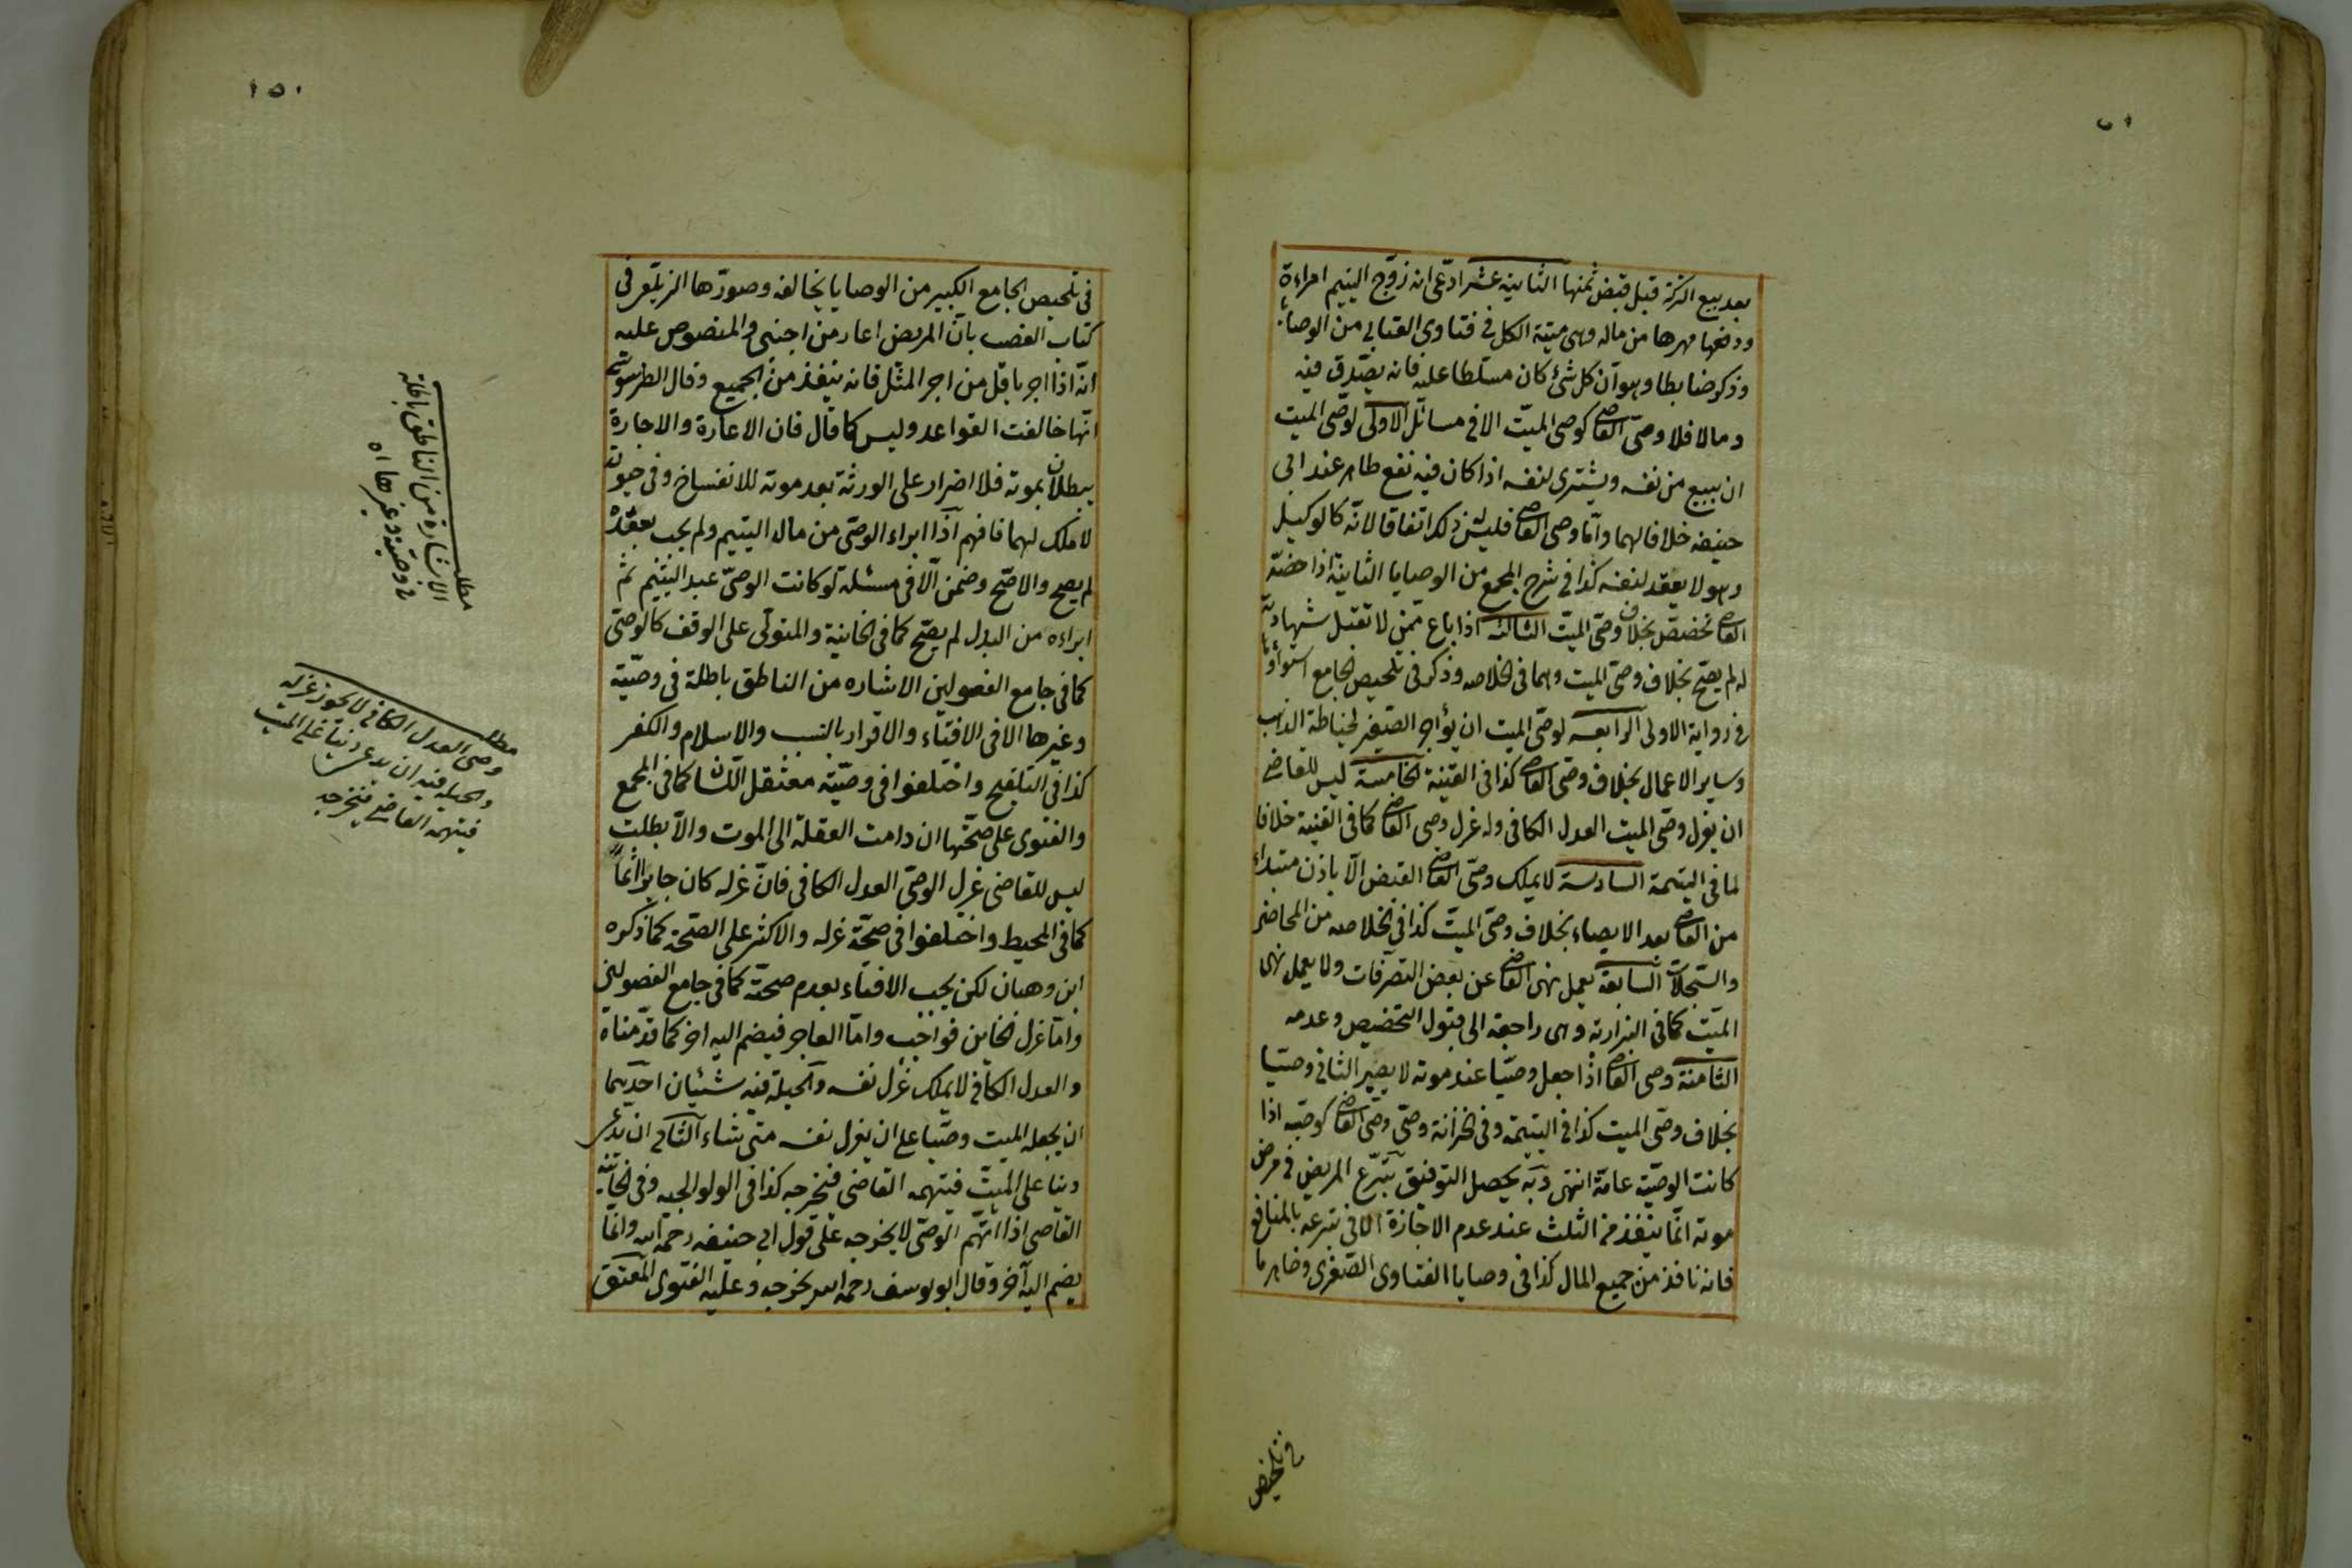 بعد بيع التركة قبل قبض ثمنها الثانية عشر ادعى انه زوّج اليتيم امراءة
ودفعها مهرها من ماله وهى ميتة الكل فى فتاوى العتابى من الوصايا
وذكر ضابطا وهو ان كل شئ كان مسلطا عليه فانه يصدّق فيه
ومالا فلا وصىّ القاضى كوصى الميّت الا فى مسائل الاولى لوصى الميت
ان يبيع من نفسه ويشترى لنفسه اذا كان فيه نفع ظاهر عند ابى
حنيفه خلافا لهما وامّا وصى القاضى فليس له ذلك اتفاقا لانّه كالوكيل
وهو لا يعقد لنفسه كذا فى شرح المجمع من الوصايا الثانية اذا خصّه
القاضى تخصّص بخلاف وصىّ الميت الثالثه اذا باع ممّن لا تقبل شهادته
له لم يصحّ بخلاف وصىّ الميت وهما فى الخلاصه وذكر فى تلخيص الجامع استواؤهما
فى رواية الاولى الرابعه لوصىّ الميت ان يؤاجر الصغير لخياطة الذهب
وساير الاعمال بخلاف وصىّ القاضى كذا فى القنية الخامسة ليس للقاضى
ان يعزل وصىّ الميت العدل الكافى وله عزل وصى القاضى كما فى القنية خلافا
لما فى اليتيمة السادسة لا يملك وصىّ القاضى القبض الاّ باذن مبتداء
من القاضى بعد الايصاء بخلاف وصىّ الميّت كذا فى الخلاصه من المحاضر
والسّجلات السّابعة يعمل نهى القاضى عن بعض التصرفات ولا يعمل نهى
الميّت كما فى البزازيه وهى راجعة الى قبول التخصيص وعدمه
الثامنة وصى القاضى اذا جعل وصيّا عند موته لا يصير الثانى وصيّا
بخلاف وصىّ الميت كذا فى اليتيمة وفى الخزانة وصىّ وصىّ القاضى كوصيّه اذا
كانت الوصيّه عامّة انتهى وبه يحصل التوفيق تبرّع المريض فى مرض
موته انّما ينفذ من الثلث عند عدم الاجازة الا فى تبرعه بالمنافع
فانه نافذ من جميع المال كذا فى وصايا الفتاوى الصّغرى وظاهر ما
فى تلخيص
١٥٠
فى تلخيص الجامع الكبير من الوصايا يخالفه وصورّها الزيلعى فى
كتاب الغصب بانّ المريض اعار من اجنبى والمنصوص عليه
انّه اذا اجر باقلّ من اجر المثل فانه ينفذ من الجميع وقال الطرسوسى
انّها خالفت القواعد وليس كما قال فان الاعارة والاجارة
يبطلان بموته فلا اضرار على الورثة بعد موته للانفساخ وفى حيوته
لا ملك لهما فافهم اذا ابراء الوصى من مال اليتيم ولم يجب بعقده
لم يصح والا صحّ وضمن الّا فى مسئلة لو كانت الوصىّ عبد اليتيم ثم
ابراءه من البدل لم يصحّ كما فى الخانية والمتولّى على الوقف كالوصىّ
كما فى جامع الفصولين الاشاره من الناطق باطلة فى وصيّة
وغيرها الا فى الافتاء والاقرار بالنسب والاسلام والكفر
كذا فى التلقيح واختلفوا فى وصيّة معتقل اللّسان كما فى المجمع
والفتوى على صحّتها ان دامت العقلة الى الموت والاّ بطلت
ليس للقاضى عزل الوصىّ العدل الكافى فانّ عزله كان جايرا اثما
كما فى المحيط واختلفوا فى صحّة عزله والاكثر على الصّحة كما ذكره
ابن وهبان لكن يجب الافتاء بعدم صحّته كما فى جامع الفصولين
وامّا عزل الخاين فواجب وامّا العاجز فيضم اليه اخر كما قدّمناه
والعدل الكافى لا يملك عزل نفسه والحيلة فيه شيئان احديهما
ان يجعله الميت وصيّا على ان يعزل نفسه متى شاء الثانى ان يدعى
دينا على الميّت فيتهمه القاضى فيخرجه كذا فى الولوالجيه وفى الخانية
القاضى اذا اتّهم الوصىّ لا يخرجه على قول ابى حنيفه رحمه الله وانّما
يضم اليه آخر وقال ابو يوسف رحمه الله يخرجه وعليه الفتوى المعتق
مطلب
الاشارة من الناطق باطلة
فى وصيّة وغيرها
مطلب
وصى العدل الكافى لا يجوز عزله
والحيله فيه ان يدعى دينا على الميت
فيتهمه القاضى فيخرجه